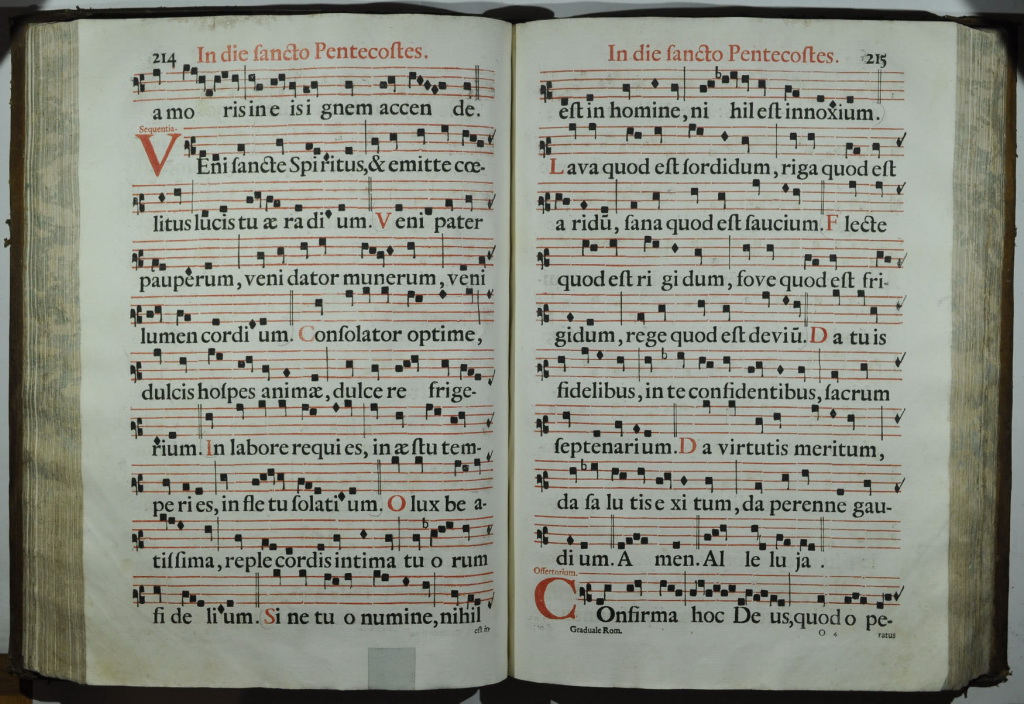 214 In die ſancto Pentecoſtes.
a mo ris in e is i gnem accen de.
Sequentia.
VEni ſancte Spiritus,& emitte cœ-
litus lucis tu æ ra di um. Veni pater
pauperum, veni dator munerum, veni
lumen cordi um. Conſolator optime,
dulcis hoſpes animæ, dulce re frige-
rium. In labore requi es, in æſtu tem-
pe ri es, in fle tu ſolati um. O lux be a-
tiſſima, reple cordis intima tu o rum
fi de li um. Si ne tu o numine, nihil
eſt in
In die ſancto Pentecoſtes. 215
eſt in homine, ni hil eſt innoxium.
Lava quod eſt ſordidum, riga quod eſt
a ridū, ſana quod eſt ſaucium. Flecte
quod eſt ri gi dum, fove quod eſt fri-
gidum, rege quod eſt deviū. Da tu is
fidelibus, in te confidentibus, ſacrum
ſeptenari um. Da virtutis meritum,
da ſa lu tis e xi tum, da perenne gau-
di um. A men. Al le lu ja.
Offertorium.
COnfirma hoc De us, quod o pe-
Graduale Rom. O 4 ratus